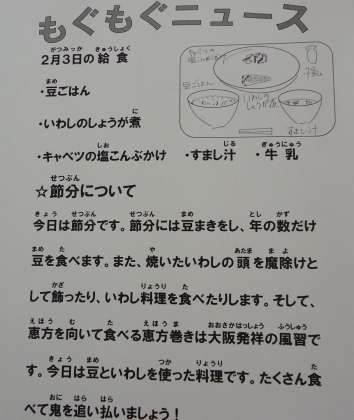 もぐもぐニュース
2月3日の給食
・豆ごはん
・いわしのしょうが煮
・キャベツの塩こんぶかけ ・すまし汁 ・牛乳
☆節分について
今日は節分です。節分には豆まきをし、年の数だけ
豆を食べます。また、焼いたいわしの頭を魔除けと
して飾ったり、いわし料理を食べたりします。そして、
恵方を向いて食べる恵方巻きは大阪発祥の風習で
す。今日は豆といわしを使った料理です。たくさん食
べて鬼を追い払いましょう！